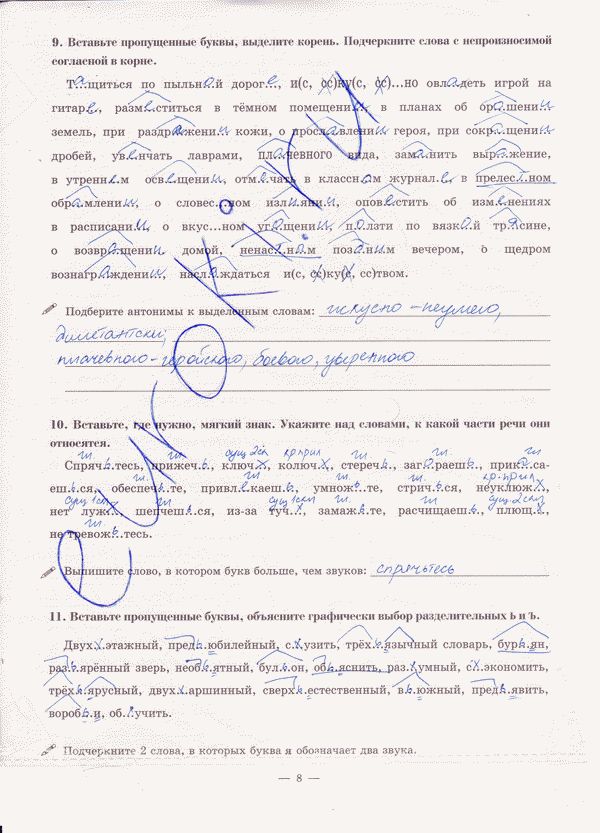 9. Вставьте пропущенные буквы, выделите корень. Подчеркните слова с непроизносимой
согласной в корне.
Та...щиться по пыльн...й дорог...е, и(с, сс)ку(с, сс)...но овла...деть игрой на
гитар...е, разм...е ститься в тёмном помещени...и, в планах об ор...ошени...и
земель, при раздра...жени...и кожи, о просла...влени...и героя, при сокра...щени...и
дробей, уве...нчать лаврами, пла...чевного вида, зам...нить выра...жение,
в утренне...м осве...щени...и, отме...чать в классно...м журнал...е, в прелест...ном
обра...млени...и, о словес...ном изли...яни...и, опове...стить об изме...нениях
в расписани...и, о вкус...ном уго...щени...и, по...лзти по вязко...й тря...сине,
о возвра...щени...и домой, ненаст...но...м позд...ни...м вечером, о щедром
вознагра...ждени...и, насла...ждаться и(с, сс)ку(с, сс)твом.
Подберите антонимы к выделенным словам: искусно - неумело,
дилетантски;
плачевного - геройского, боевого, уверенного
10. Вставьте, где нужно, мягкий знак. Укажите над словами, к какой части речи они
относятся.
гл. гл. сущ 2ск кр прил гл. гл. гл.
Спрячь...тесь, прижеч...ь, ключ..., колюч..., стереч...ь, заг...раешь..., прик...са-
ешь...ся, обеспечь...те, привл...екаешь..., умножь...те, стричь...ся, неуклюж...,
нет луж..., шепчешь...ся, из-за туч..., замажь...те, расчищаешь..., плющ...,
не тревожь...тесь.
Выпишите слово, в котором букв больше, чем звуков: спрячьтесь
11. Вставьте пропущенные буквы, объясните графически выбор разделительных ь и ъ.
Двух...этажный, предъ...юбилейный, с...узить, трёхъ...язычный словарь, бурь...ян,
разъ...ярённый зверь, необъ...ятный, буль...он, объ...яснить, раз...умный, с...экономить,
трёхъ...ярусный, двух...аршинный, сверхъ...естественный, вь...южный, предъ...явить,
воробь...и, об...учить.
Подчеркните 2 слова, в которых буква я обозначает два звука.
— 8 —
euroki.ru